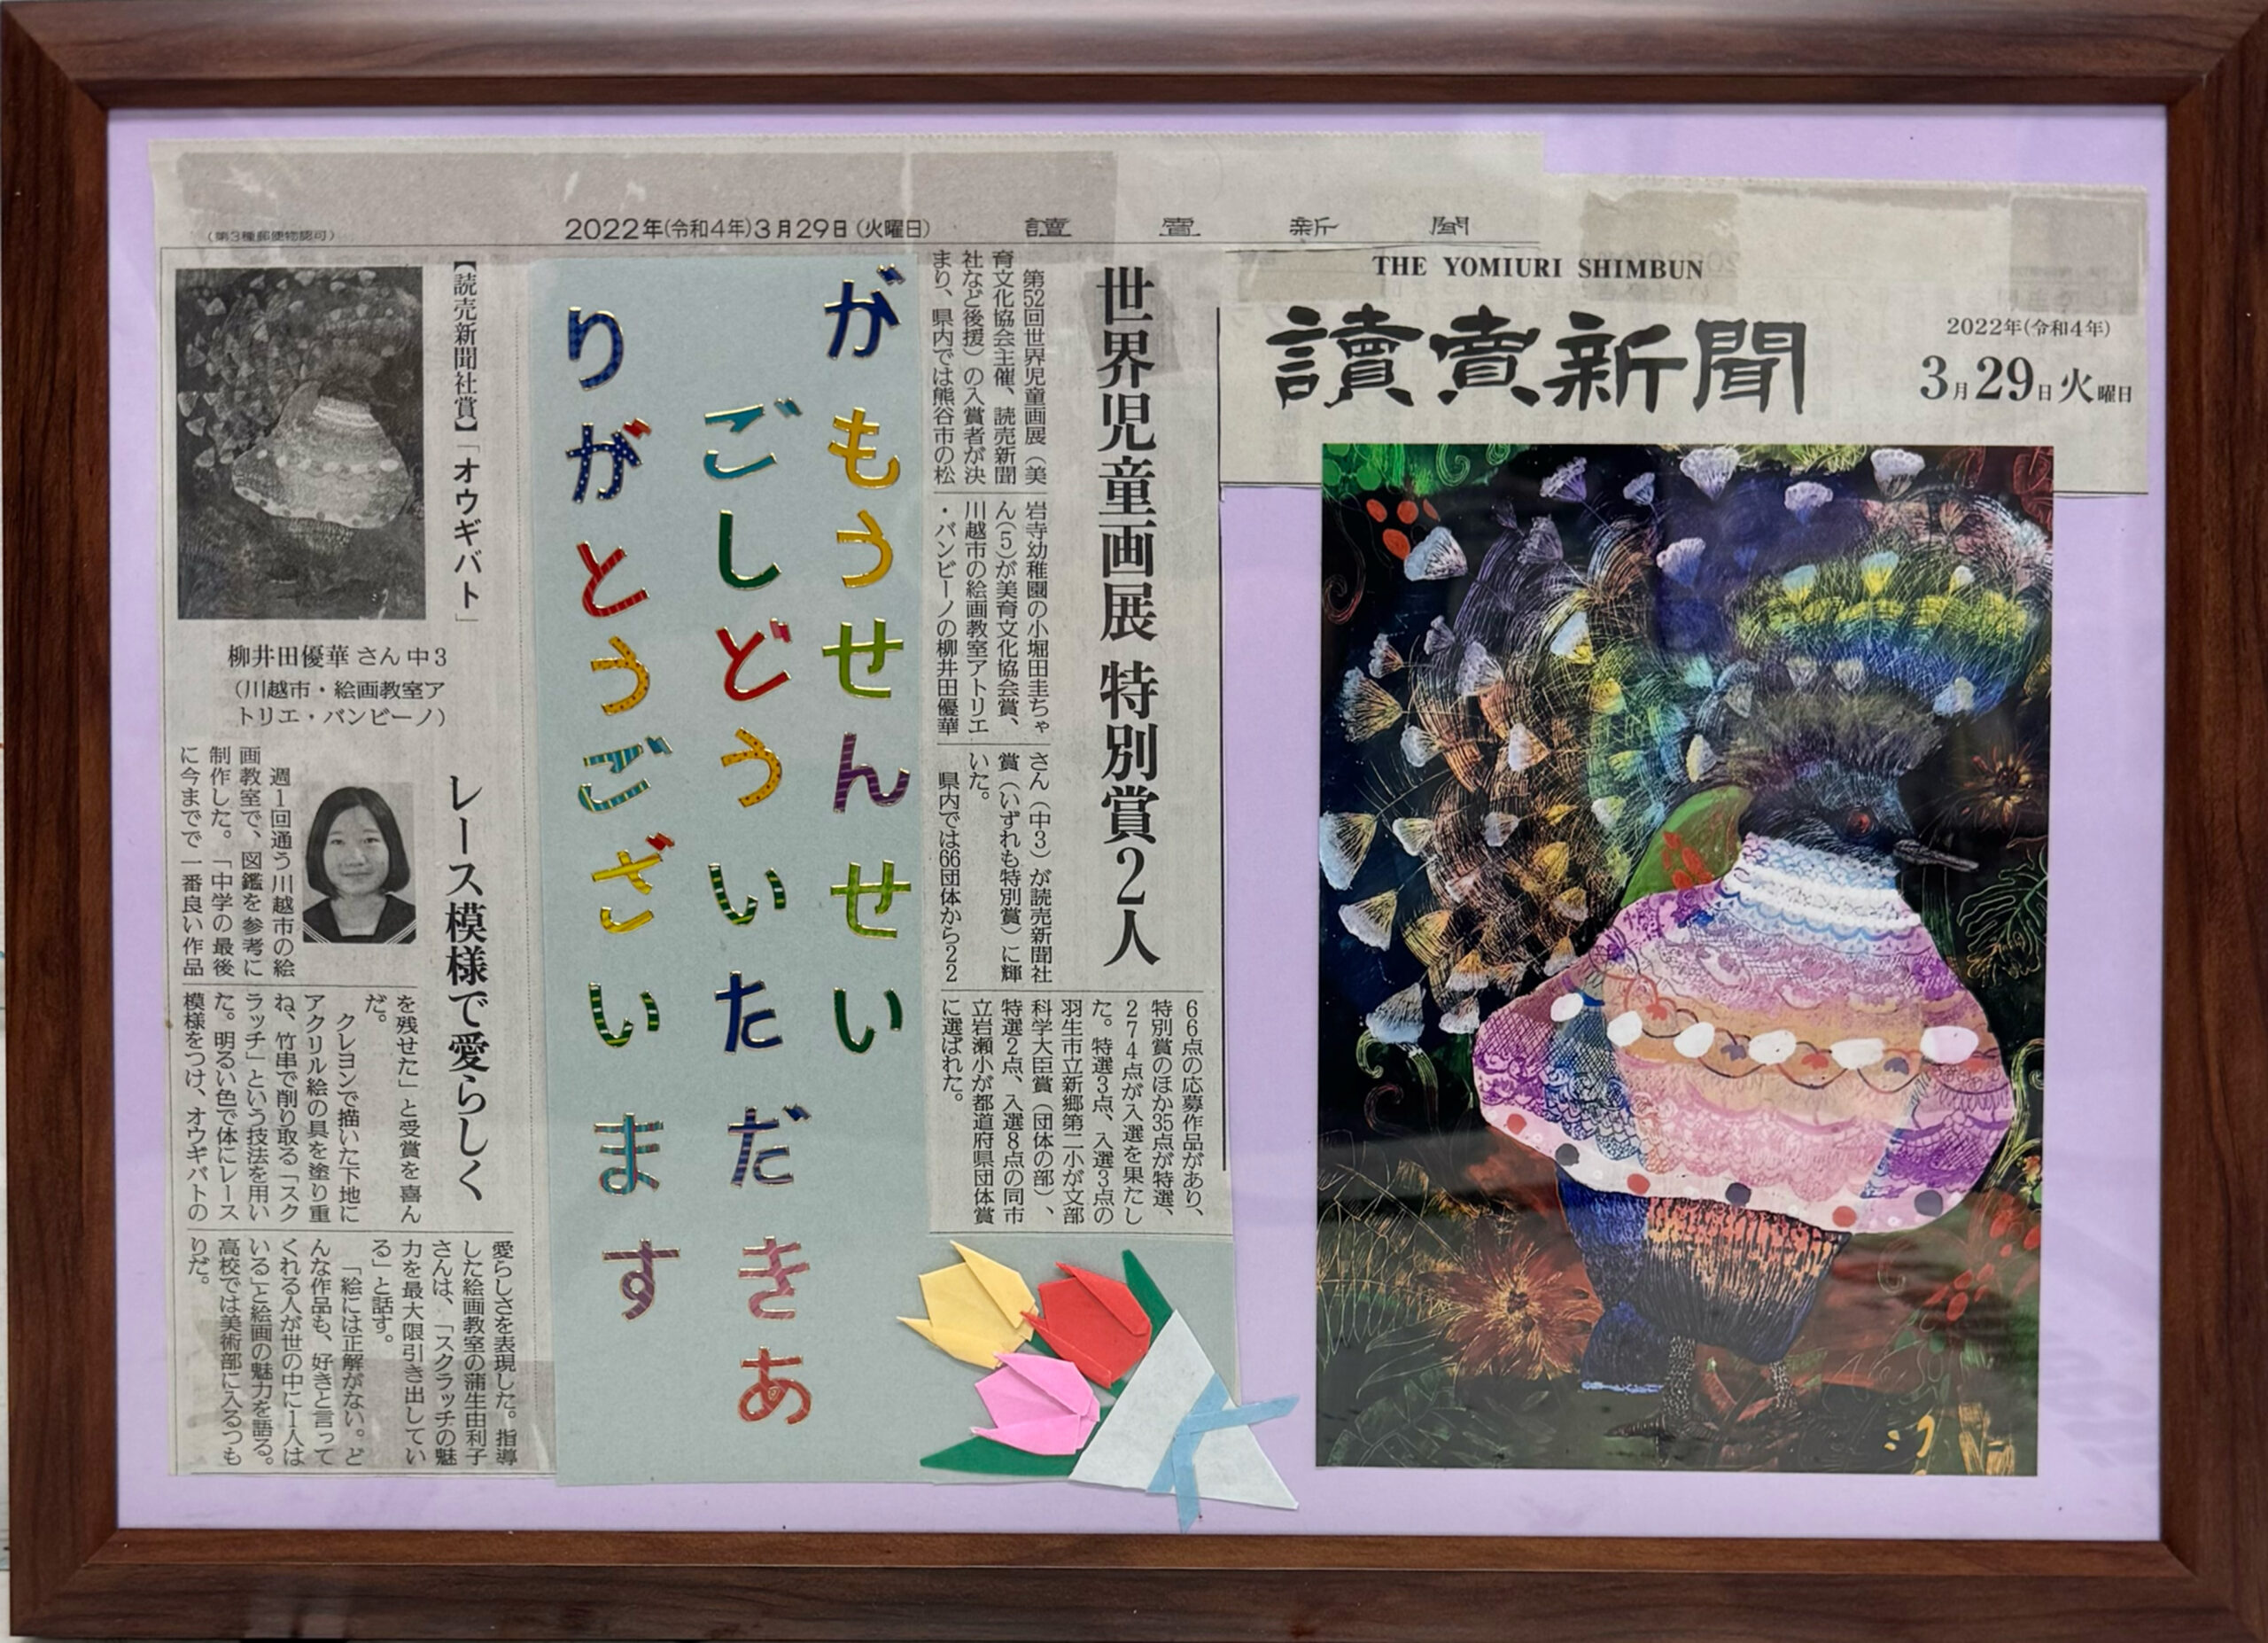 (第3種郵便物認可)
2022年(令和4年)3月29日(火曜日)
讀賣新聞
THE YOMIURI SHIMBUN
讀賣新聞
2022年(令和4年)
3月29日火曜日
世界児童画展 特別賞2人
第52回世界児童画展(美
育文化協会主催、読売新聞
社など後援)の入賞者が決
まり、県内では熊谷市の松
岩寺幼稚園の小堀田圭ちゃ
ん(5)が美育文化協会賞、
川越市の絵画教室アトリエ
・バンビーノの柳井田優華
さん(中3)が読売新聞社
賞(いずれも特別賞)に輝
いた。
県内では66団体から22
66点の応募作品があり、
特別賞のほか35点が特選、
274点が入選を果たし
た。特選3点、入選3点の
羽生市立新郷第二小が文部
科学大臣賞(団体の部)、
特選2点、入選8点の同市
立岩瀬小が都道府県団体賞
に選ばれた。
がもうせんせい
ごしどういただきあ
りがとうございます
【読売新聞社賞】「オウギバト」
柳井田優華さん 中3
(川越市・絵画教室ア
トリエ・バンビーノ)
レース模様で愛らしく
週1回通う川越市の絵
画教室で、図鑑を参考に
制作した。「中学の最後
に今までで一番良い作品
を残せた」と受賞を喜ん
だ。
クレヨンで描いた下地に
アクリル絵の具を塗り重
ね、竹串で削り取る「スク
ラッチ」という技法を用い
た。明るい色で体にレース
模様をつけ、オウギバトの
愛らしさを表現した。指導
した絵画教室の蒲生由利子
さんは、「スクラッチの魅
力を最大限引き出してい
る」と話す。
「絵には正解がない。ど
んな作品も、好きと言って
くれる人が世の中に1人は
いる」と絵画の魅力を語る。
高校では美術部に入るつも
りだ。